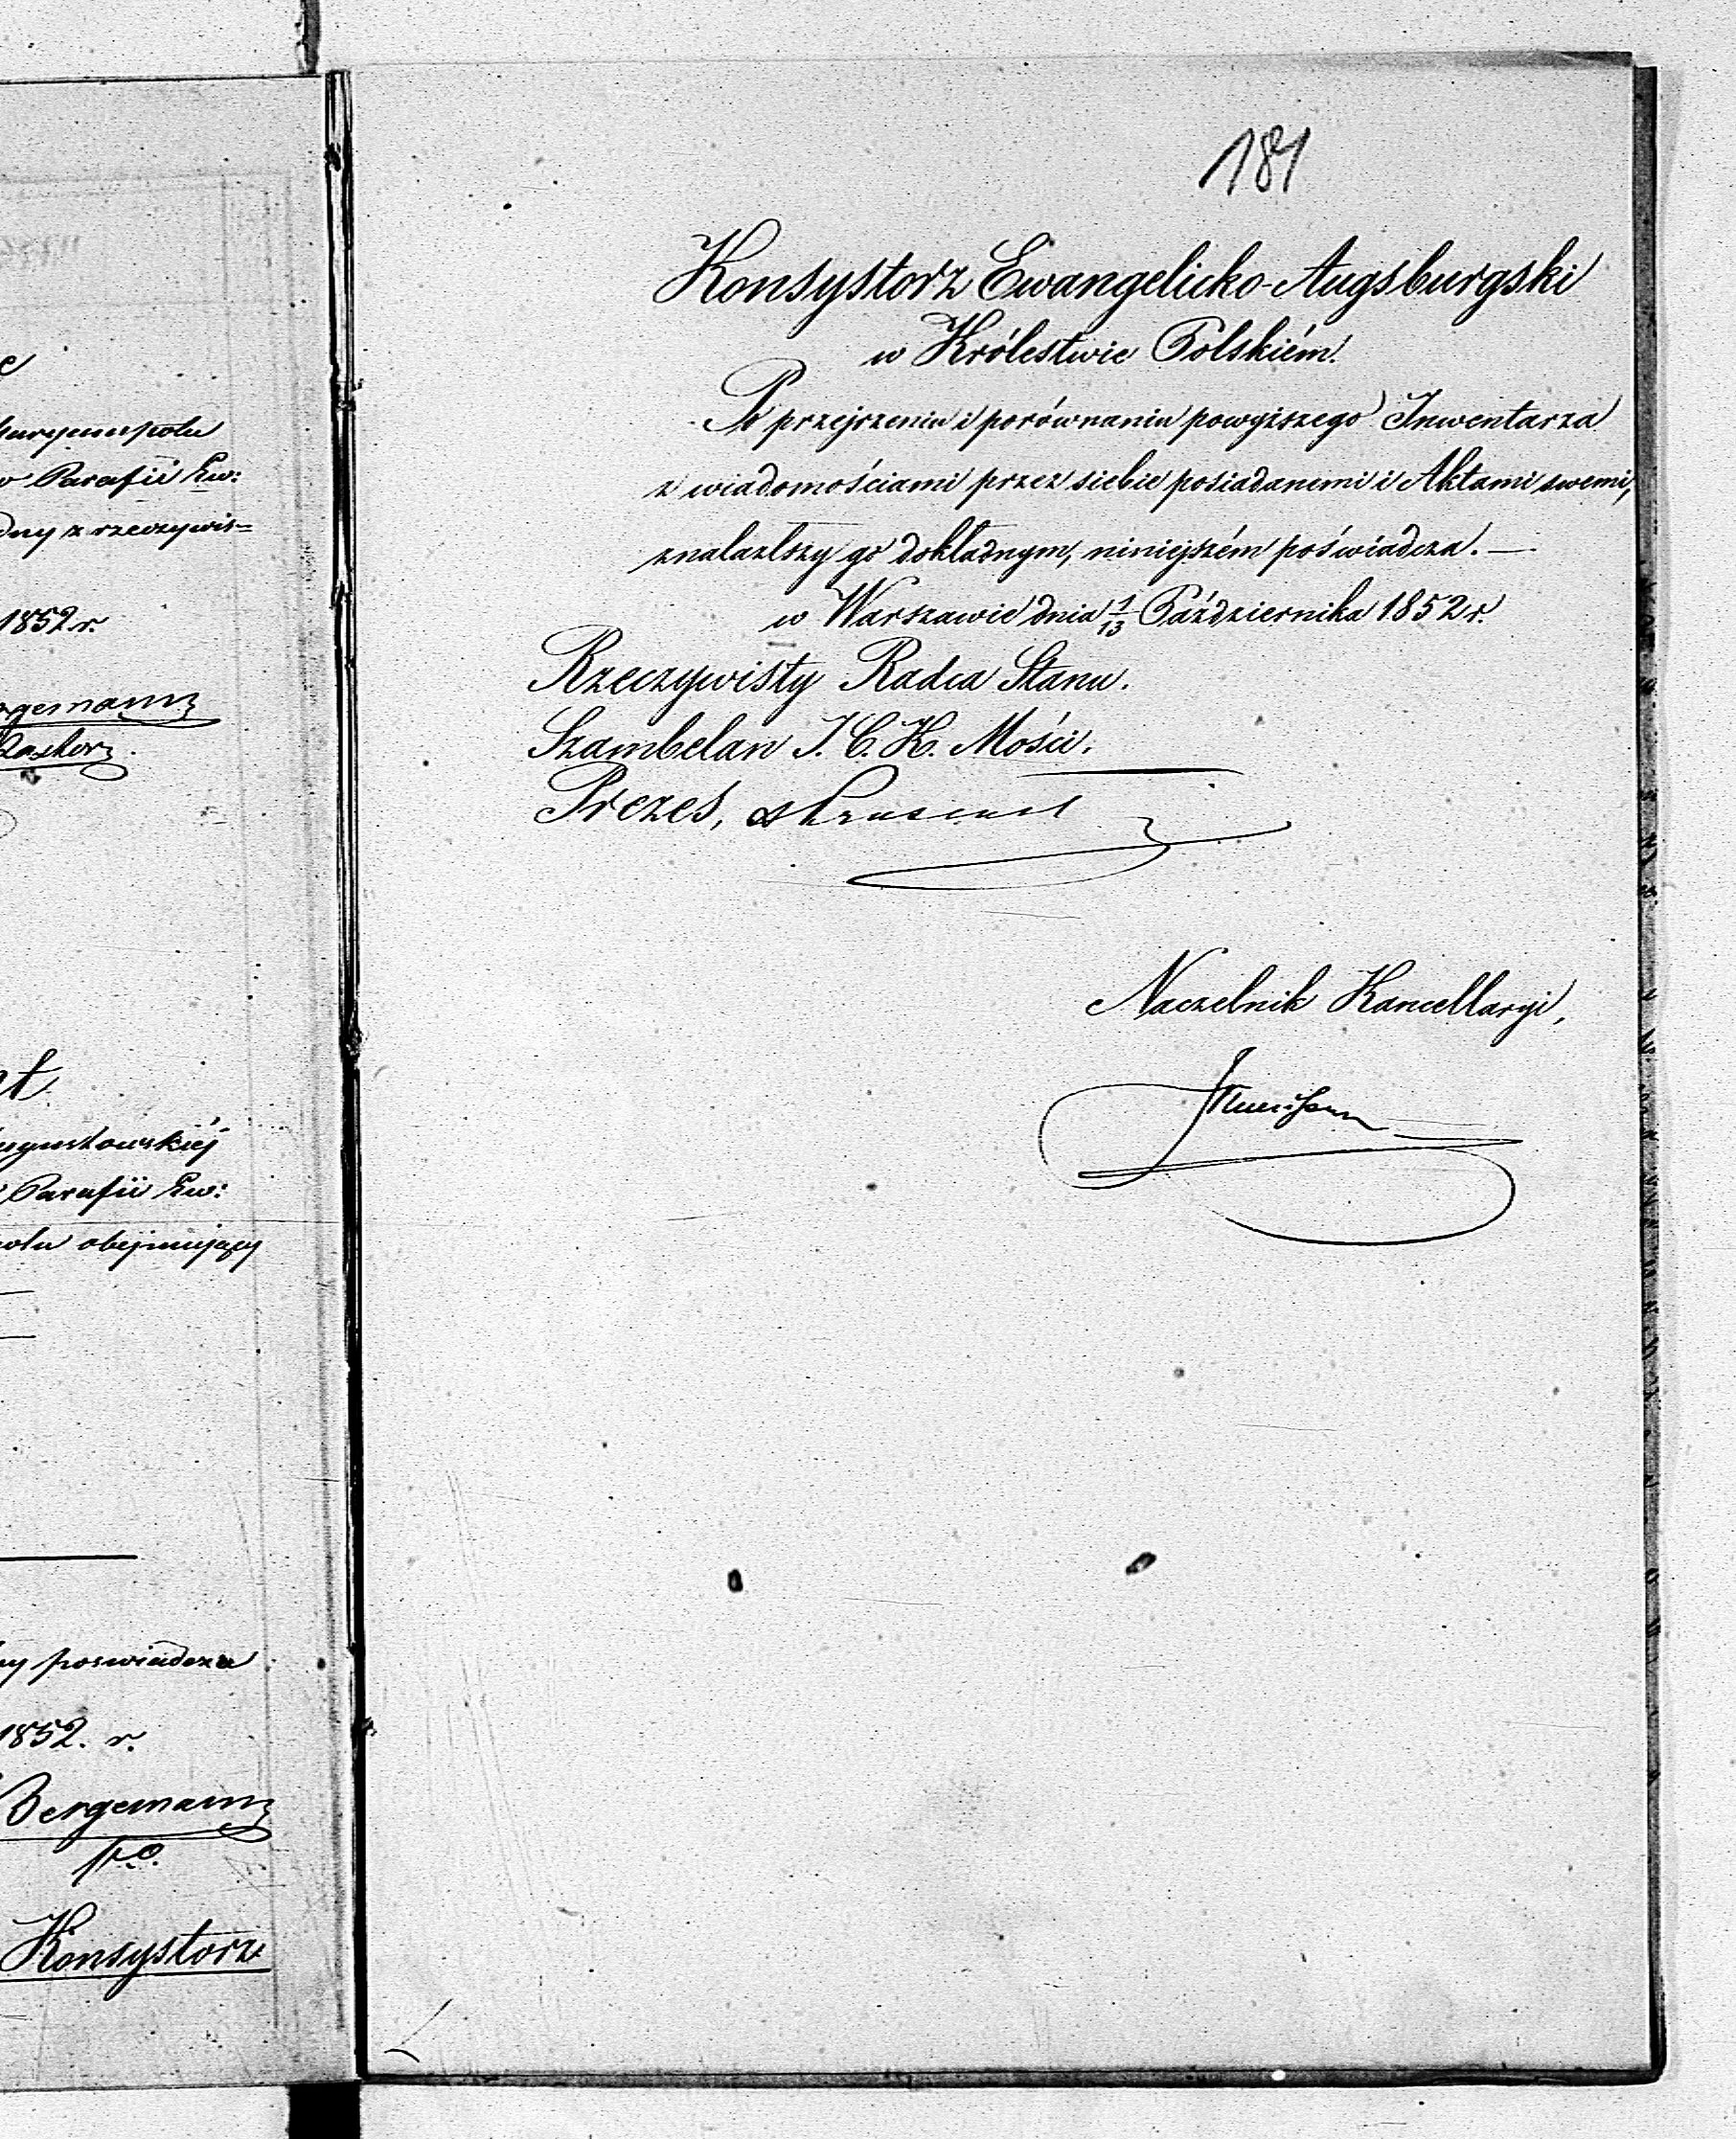 e
Maryampolu
w Parafii Ew:
dny z rzeczywis=
1852 r.
rgemann
Pastor
nt
Augustowskiéj
Parafii Ew:
polu obejmujący
ny poswiadcza
1852. r.
Bergemann
Konsystorz
181
Konsystorz Ewangelicko-Augsburgski
w Królestwie Polskiém.
Po przejrzeniu i porównaniu powyższego Inwentarza
z wiadomościami przez siebie posiadanemi i Aktami swemi,
znalazłszy go dokładnym, niniejszém poświadcza. —
w Warszawie dnia 1/13 Października 1852 r.
Rzeczywisty Radca Stanu.
Szambelan J. C. K. Mości.
Prezes,
Naczelnik Kancellaryi,